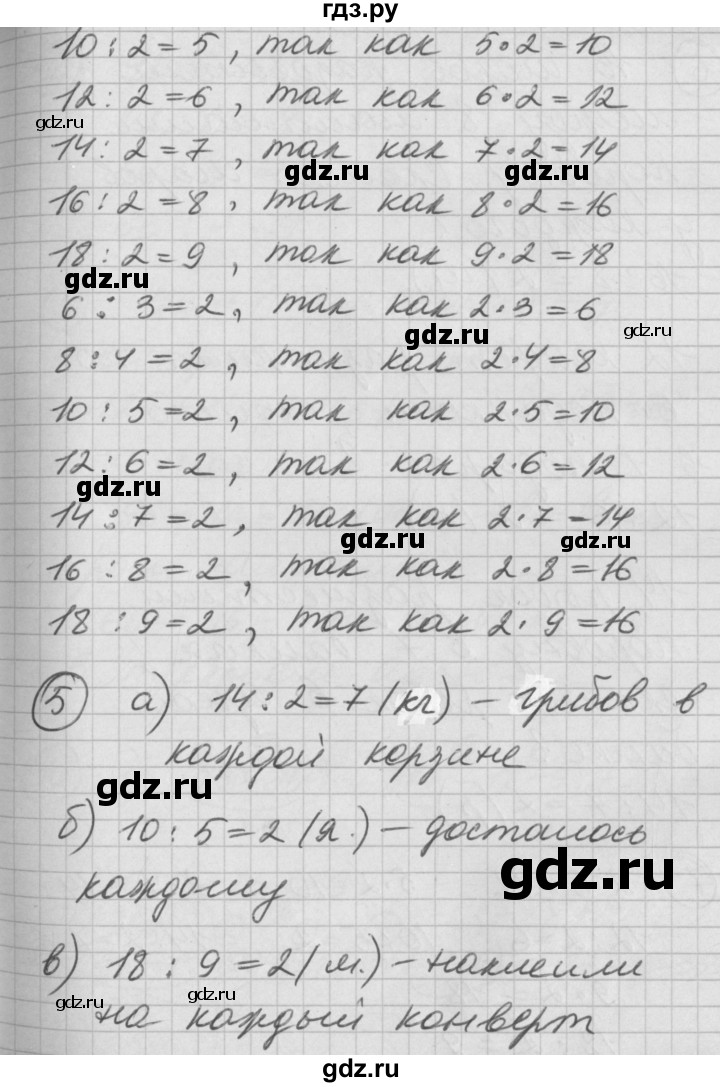 гдз.ру
10 : 2 = 5 , так как 5 · 2 = 10
12 : 2 = 6 , так как 6 · 2 = 12
gdz.ru
14 : 2 = 7 , так как 7 · 2 = 14
gdz.ru
gdz.ru
16 : 2 = 8 , так как 8 · 2 = 16
18 : 2 = 9 , так как 9 · 2 = 18
gdz.ru
6 : 3 = 2 , так как 2 · 3 = 6
gdz.ru
gdz.ru
8 : 4 = 2 , так как 2 · 4 = 8
10 : 5 = 2 , так как 2 · 5 = 10
12 : 6 = 2 , так как 2 · 6 = 12
gdz.ru
14 : 7 = 2 , так как 2 · 7 = 14
gdz.ru
gdz.ru
16 : 8 = 2 , так как 2 · 8 = 16
18 : 9 = 2 , так как 2 · 9 = 16
5 а) 14 : 2 = 7 (кг) – грибов в
каждой корзине
gdz.ru
б) 10 : 5 = 2 (я.) – досталось
gdz.ru
каждому
в) 18 : 9 = 2 (м.) – наклеили
gdz.ru
gdz.ru
на каждый конверт
gdz.ru